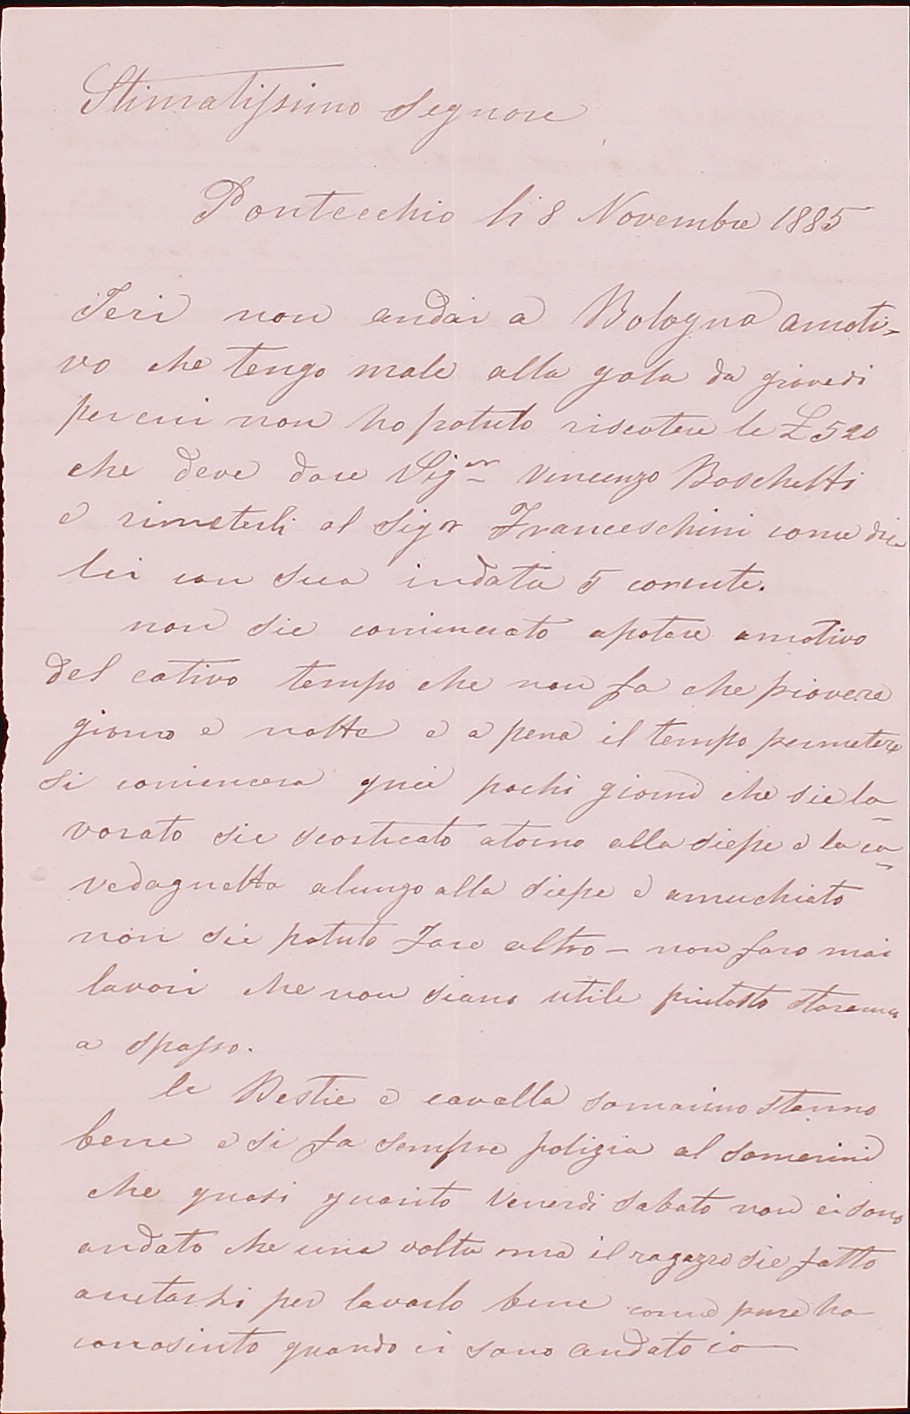 Stimatissimo Signore
Pontecchio li 8 Novembre 1885
Ieri non andai a Bologna amoti-
vo che tengo male alla gola da giovedi
per cui non ho potuto riscotere le £ 520
che deve dare Sigr Vincenzo Boschetti
e rimeterli al Sigr Franceschini come dice
lei con sua in data 5 corente.
non sie cominciato apotare amotivo
del cativo tempo che non fa che piovere
giorno e notte e a pena il tempo permetera
si comincera quei pochi giorni che sie la-
vorato sie scorticato atorno alla siepe e la ca-
vedagnetta alungo alla siepe e amuchiato
non sie potuto fare altro - non faro mai
lavori che non siano utile piutosto staremo
a spasso.
le Bestie e cavalla somarino stanno
bene e si fa sempre polizia al somerino
che quasi guarito Venerdi Sabato non ci sono
andato che una volta ma il ragazzo sie fatto
aiutarsi per lavarlo bene come pure ho
conosiuto quando ci sono andato io